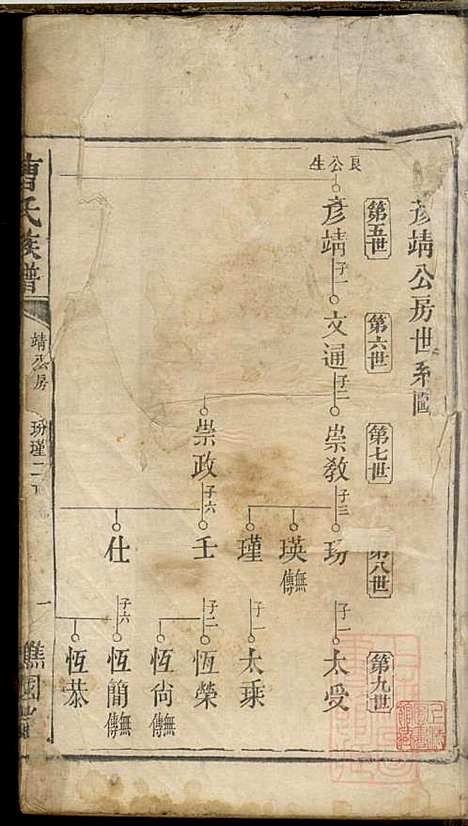 彥靖公房世系圖
第五世
第六世
第七世
第八世
第九世
良公生
彥靖
子一
文通
子二
崇教
子三
玢
子一
太受
瑛
無傳
瑾
子一
太乘
崇政
子六
壬
子二
恆榮
恆尙
無傳
仕
子六
恆簡
無傳
恆恭
曹氏族譜
靖公房
玢瑾二
一
譙國